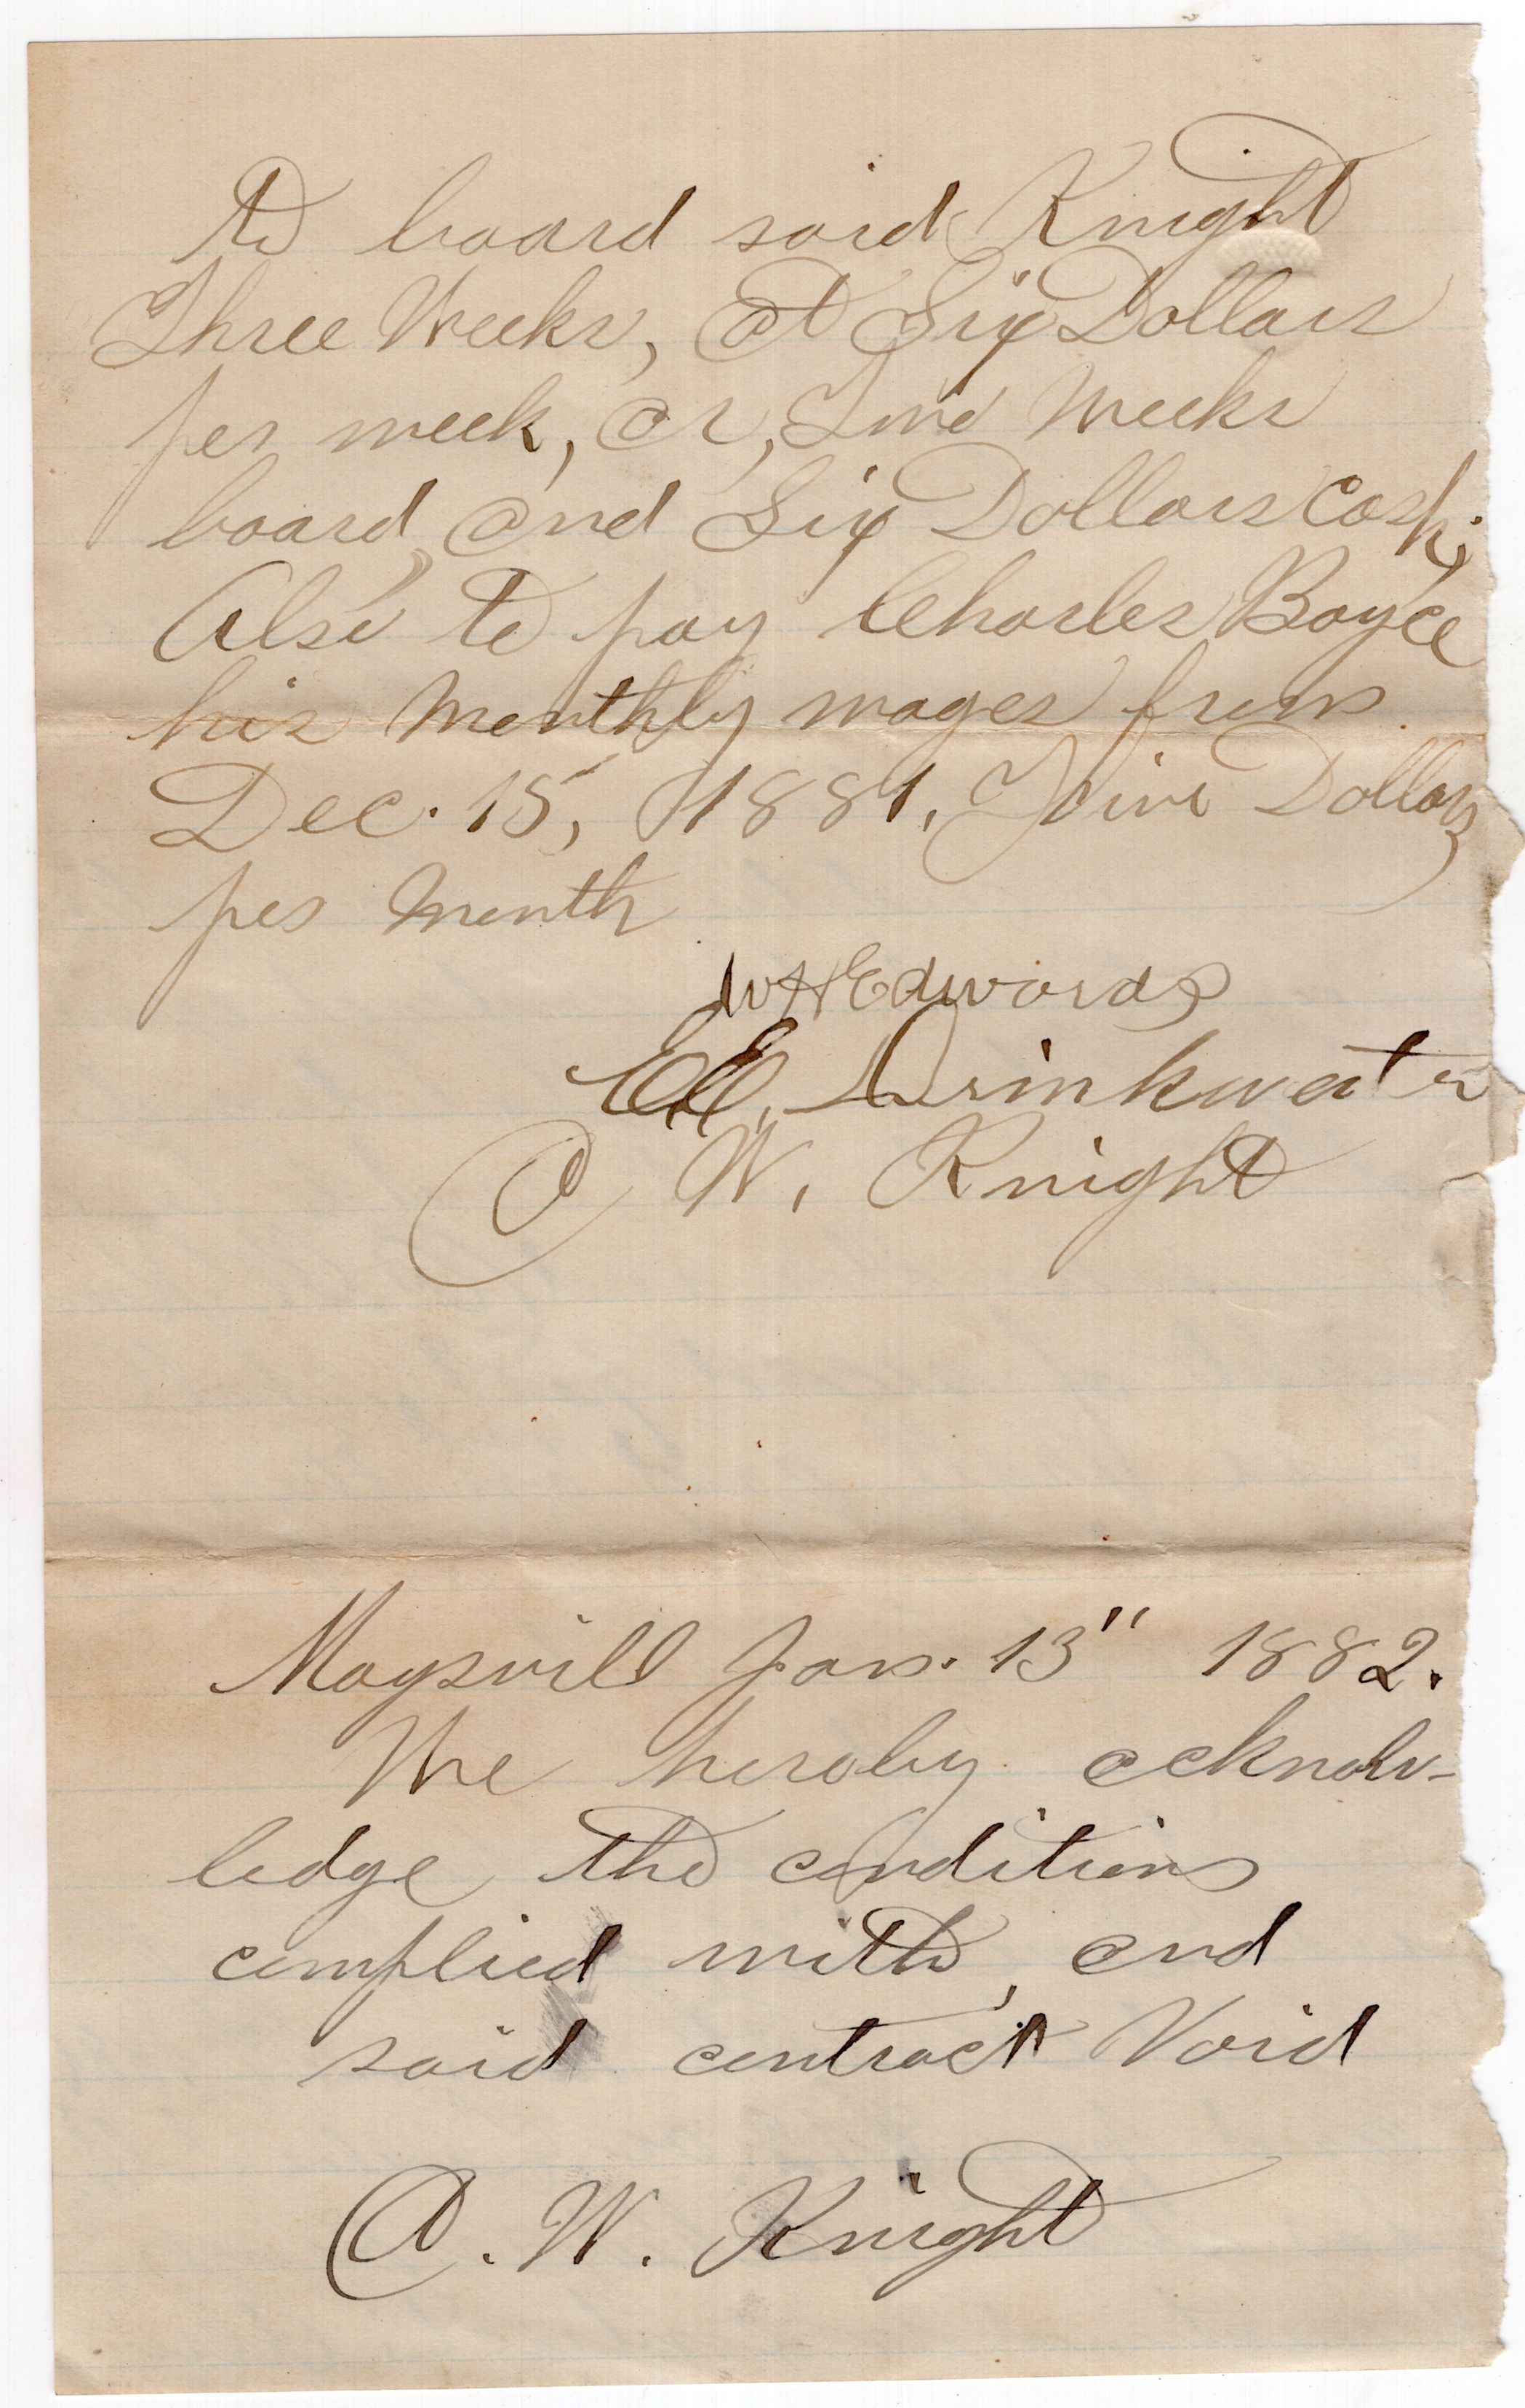 to board said Knight
Three Weeks, at Six Dollars
per week, or, Two Weeks
board, and Six Dollars Cash;
Also to pay Charles Boyce
his Monthly wages from
Dec. 15, 1881, Five Dollars
per Month
W H Edwards
E. E. Drinkwater
A W. Knight
Maysvill Jan. 13" 1882.
We heroby acknow-
ledge the conditions
complied with, and
said contract Void
A. W. Knight